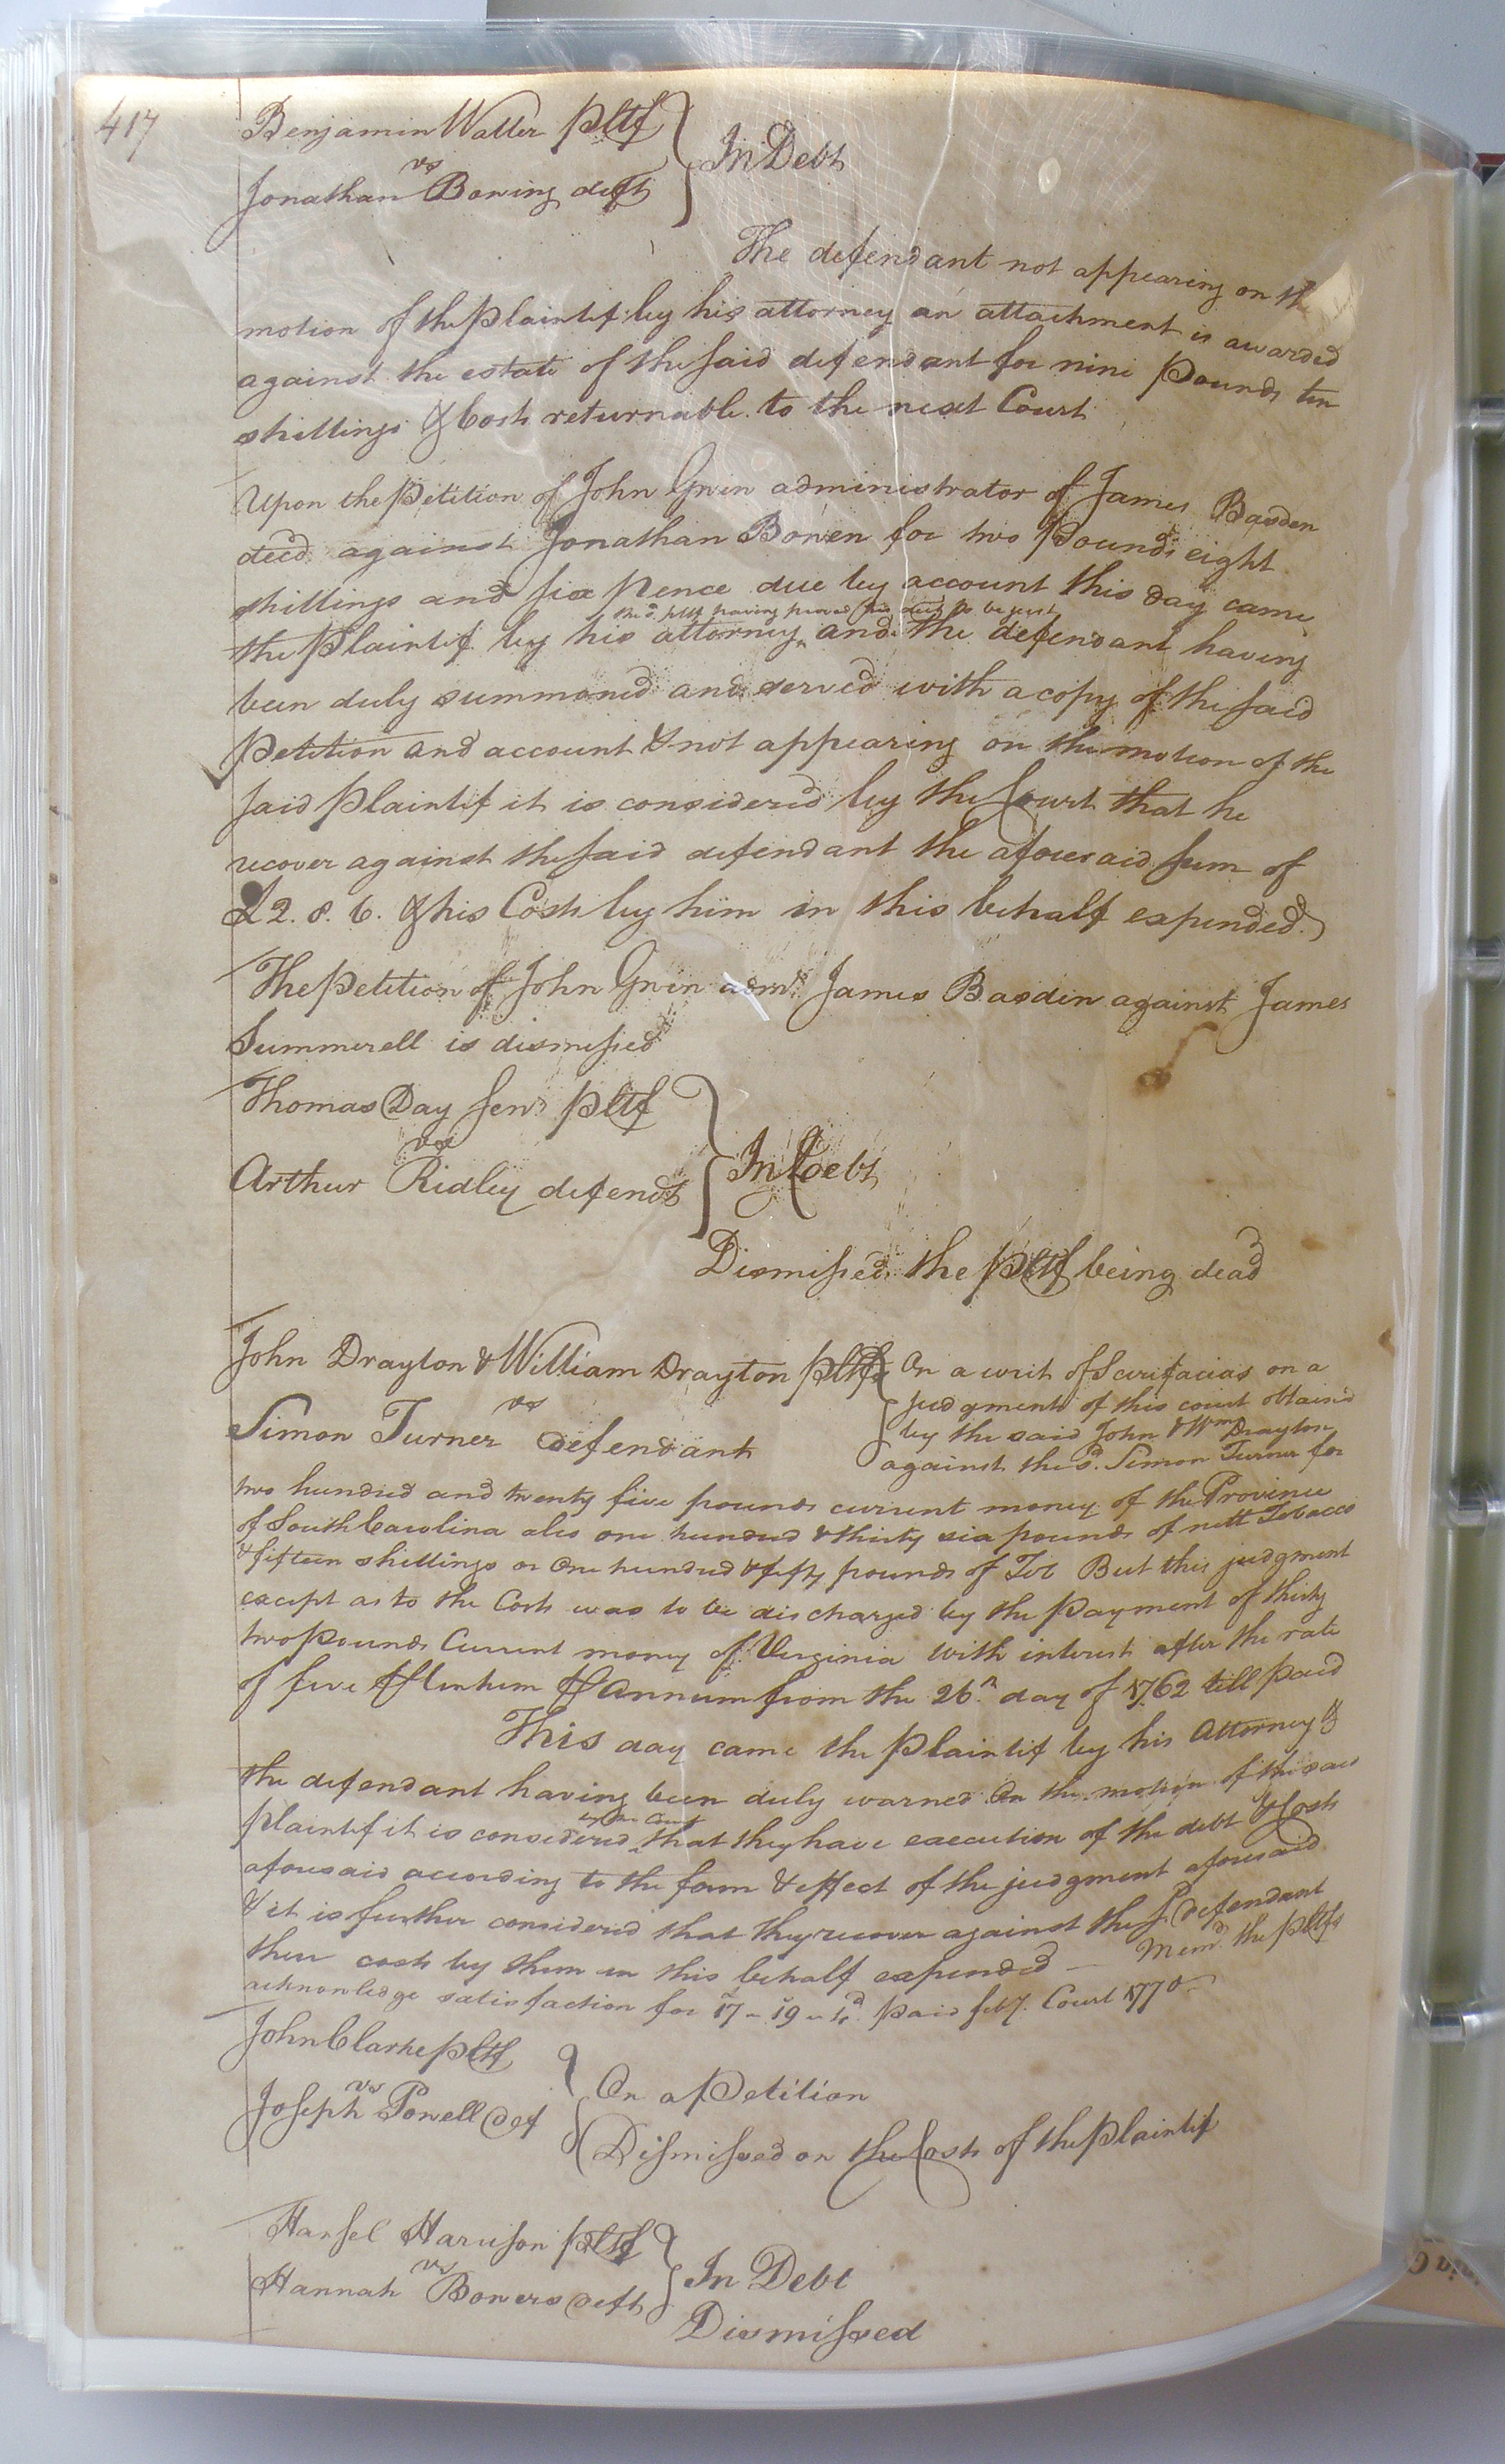 417
Benjamin Waller pltf
vs
Jonathan Bowing deft
In Debt
The defendant not appearing on the
motion of the plaintif by his attorney an attachment is awarded
against the estate of the said defendant for nine pounds ten
shillings & Costs returnable to the next Court
Upon the Petition of John Gwin administrator of James Basden
decd against Jonathan Bowen for two Pounds eight
shillings and six pence due by account this day came
the sd. pltf having proved his debt to be just
the Plaintif by his attorney and the defendant having
been duly summoned and served with a copy of the said
Petition and account & not appearing on the motion of the
said Plaintif it is considered by the Court that he
recover against the said defendant the aforesaid sum of
£2. 8. 6. & his Costs by him in this behalf expended.
The Petition of John Gwin admr. James Basden against James
Summerell is dismissed
Thomas Day senr pltf
vs
Arthur Ridley defendt
In Debt
Dismissed the pltf being dead
John Drayton & William Drayton pltfs
vs
Simon Turner defendant
On a writ of Scirefacias on a
judgment of this court obtain'd
by the said John & Wm Drayton
against the sd. Simon Turner for
two hundred and twenty five pounds current money of the Province
of South Carolina also one hundred & thirty six pounds of nett Tobacco
& fifteen shillings or One hundred & fifty pounds of Tob But this judgment
except as to the Costs was to be discharged by the payment of thirty
two pounds Current money of Virginia with interest after the rate
of five ⅌ Centum ⅌ Annum from the 26th day of 1762 till paid
This day came the Plaintif by his Attorney &
the defendant having been duly warned On the motion of the said
by the Court
plaintif it is considered that they have execution of the debt & Costs
aforesaid according to the form & effect of the judgment aforesaid
& it is further considered that they recover against the sd. defendant
their costs by them in this behalf expended — Memd. the pltfs
acknowledge satisfaction for 17 - 19 - paid feby. Court 1770
John Clarke pltf
vs
Joseph Powell def
On a Petition
Dismissed on the Costs of the plaintif
Hansel Harrison pltf
vs
Hannah Bowers deft
In Debt
Dismissed